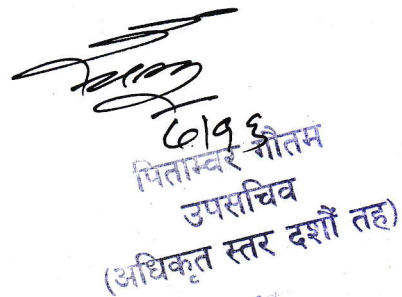 ७।१६
पिताम्वर गौतम
उपसचिव
(अधिकृत स्तर दशौं तह)